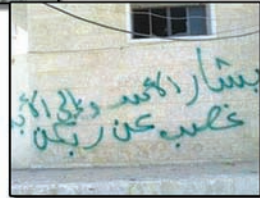 بشار الأسد وإلى الأبد
غصب عن ربكن